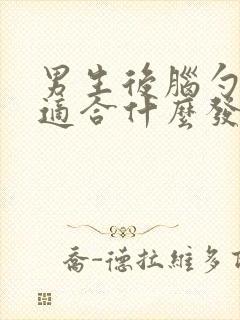 男生後腦勺
適合什麼發
喬-德拉維多